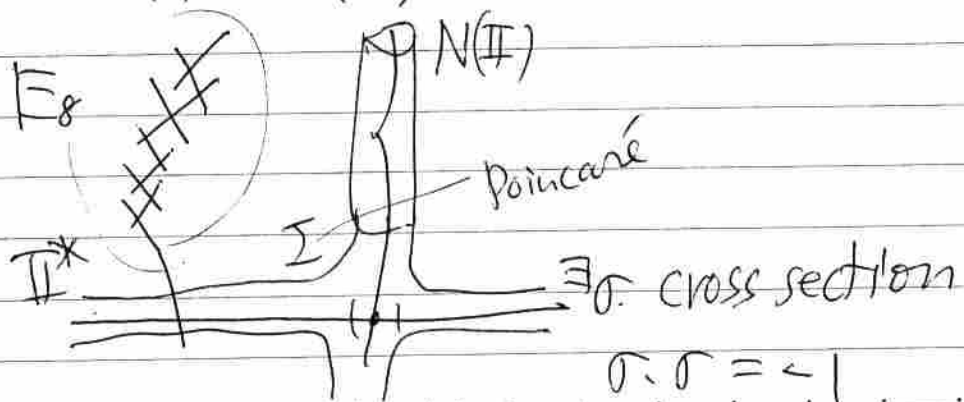 E₈ N(II)
Poincaré
Σ
II* ∃σ. cross section
σ.σ = -1